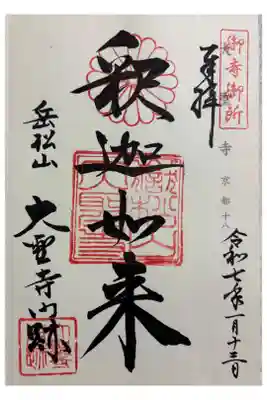 御寺御所
奉拝
寺 京都十八
令和七年一月十三日
釋迦如来
岳松山
大聖寺門跡